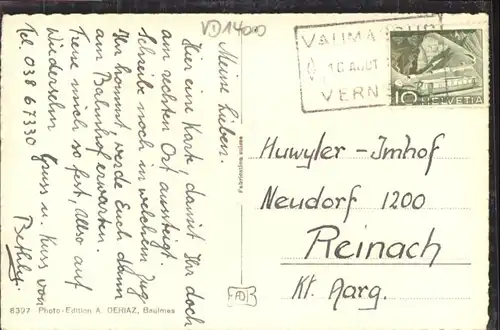 VD 1400
Meine Lieben.
Hier eine Karte, damit Ihr doch
am rechten Ort aussteigt.
Schreibe noch in welchem Zug
Ihr kommt, werde Euch dann
am Bahnhof erwarten.
Freue mich so fest, Also auf
Wiedersehn Gruss u. Kuss von
Tel. 038 67330
Bethly.
6397 Photo-Edition A. DERIAZ, Baulmes
VAUMARCUS
10 AOUT
VERN
10 HELVETIA
Huwyler-Imhof
Neudorf 1200
Reinach
Kt. Aarg.